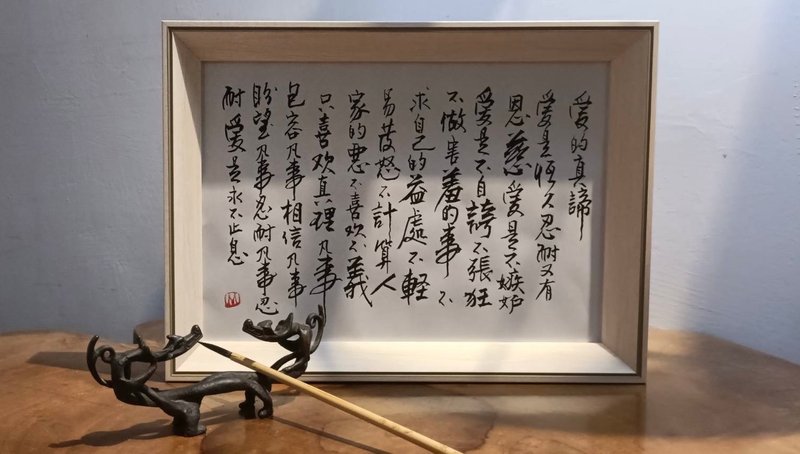 愛的真諦
愛是恒久忍耐又有
恩慈愛是不嫉妒
愛是不自誇不張狂
不做害羞的事不
求自己的益處不軽
易發怒不計算人
家的惡不喜欢不義
只喜欢真理凡事
包容凡事相信凡事
盼望凡事忍耐凡事忍
耐愛是永不止息